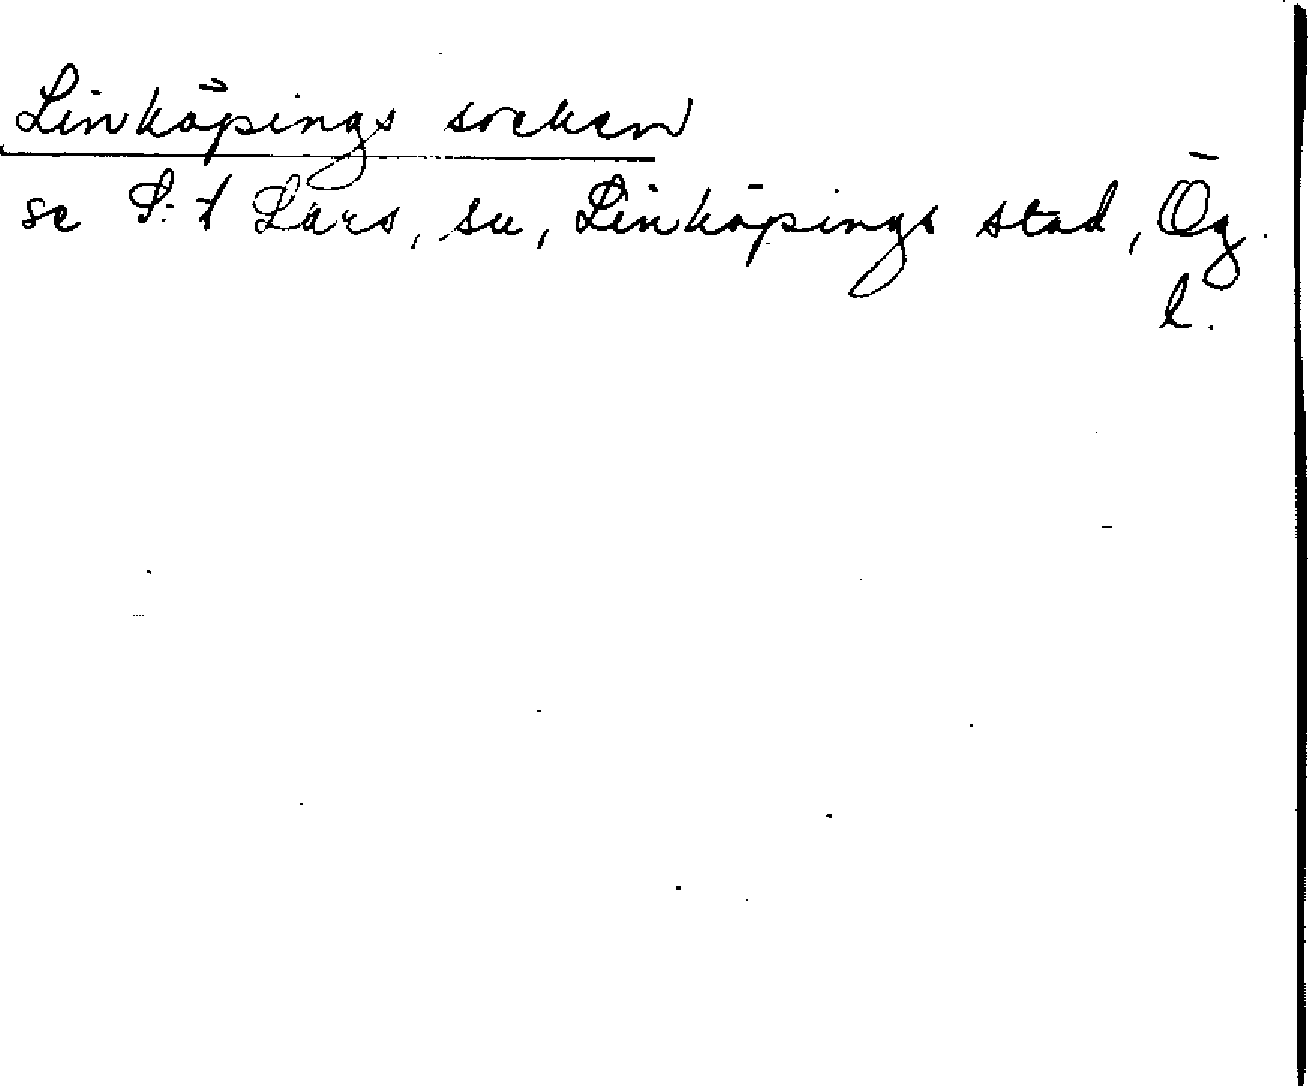 Linköpings socken
se S:t Lars, sn, Linköpings stad, Ög.
l.